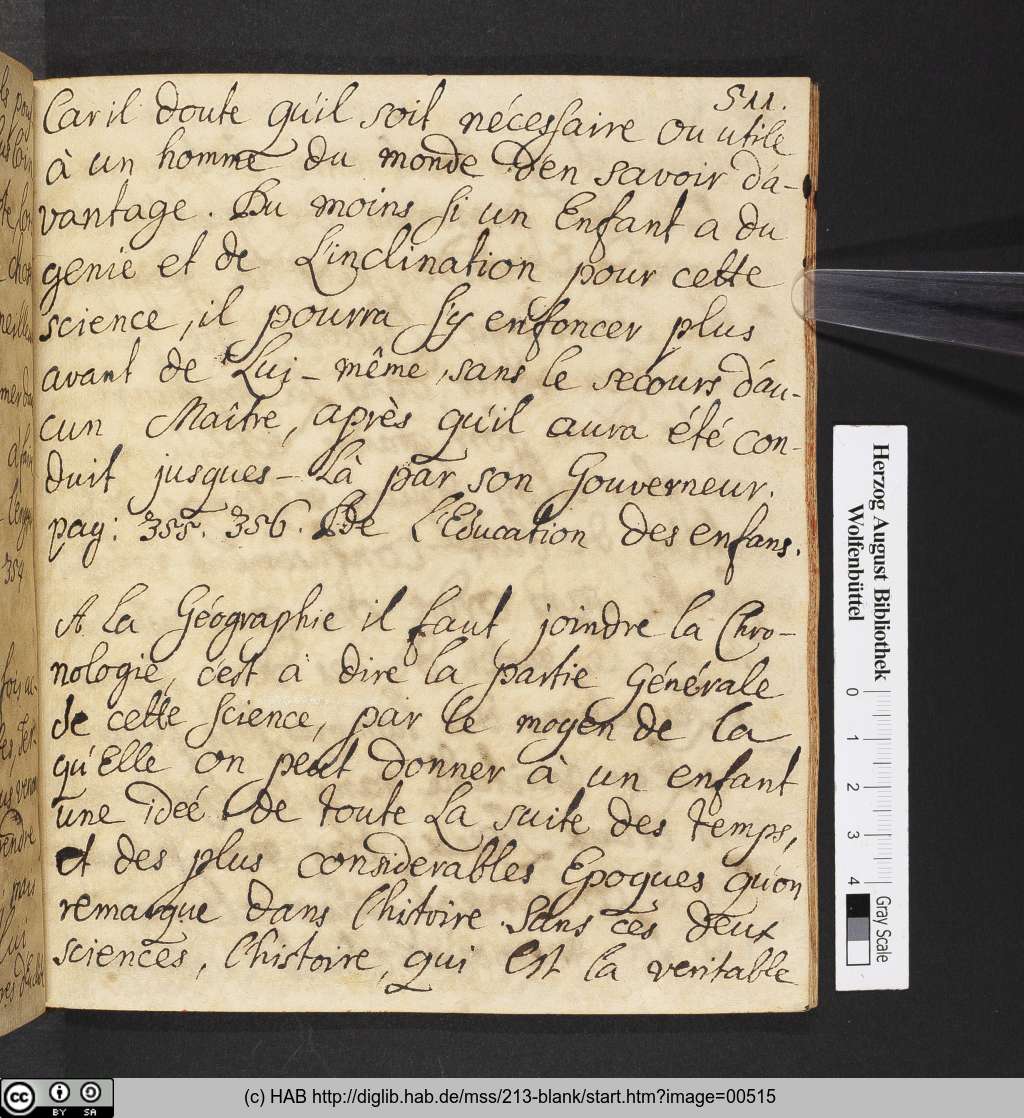 511.
Car il doute qu'il soit nécessaire ou utile
à un homme du monde d'en savoir d'a-
vantage. Du moins si un Enfant a du
genie et de L'inclination pour cette
science, il pourra s'y enfoncer plus
avant de Lui-même, sans le secours d'au-
cun Maître, après qu'il aura été con-
duit jusques-Là par son Gouverneur.
pag: 355. 356. De L'Education des enfans.
A La Géographie il faut joindre la Chro-
nologie, c'est à dire la partie Générale
de cette science, par le moyen de la
qu'Elle on peut donner à un enfant
une ideé de toute La suite des temps,
et des plus considerables Epoques qu'on
remarque dans l'hitoire. Sans ces deux
sciences, l'histoire, qui est la veritable
Herzog August Bibliothek
Wolfenbüttel
0 1 2 3 4
Gray Scale
cc BY SA
(c) HAB http://diglib.hab.de/mss/213-blank/start.htm?image=00515